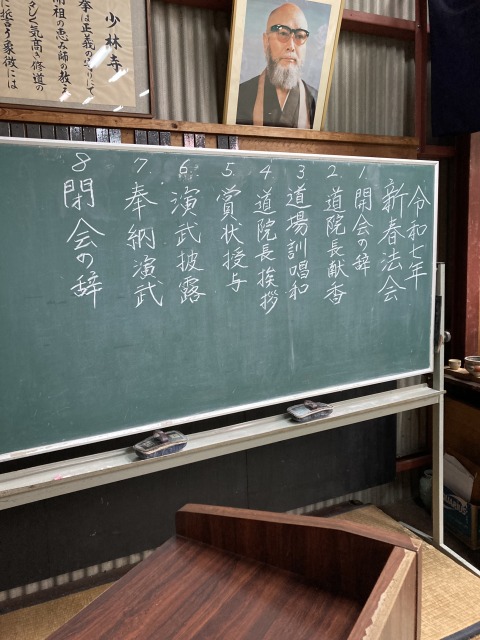 少林寺
拳は正義の
祖の恵み師の教え
気高き修道の
令和七年
新春法会
1. 開会の辞
2. 道院長献香
3 道場訓唱和
4 道院長挨拶
5. 賞状授与
6. 演武披露
7. 奉納演武
8 閉会の辞